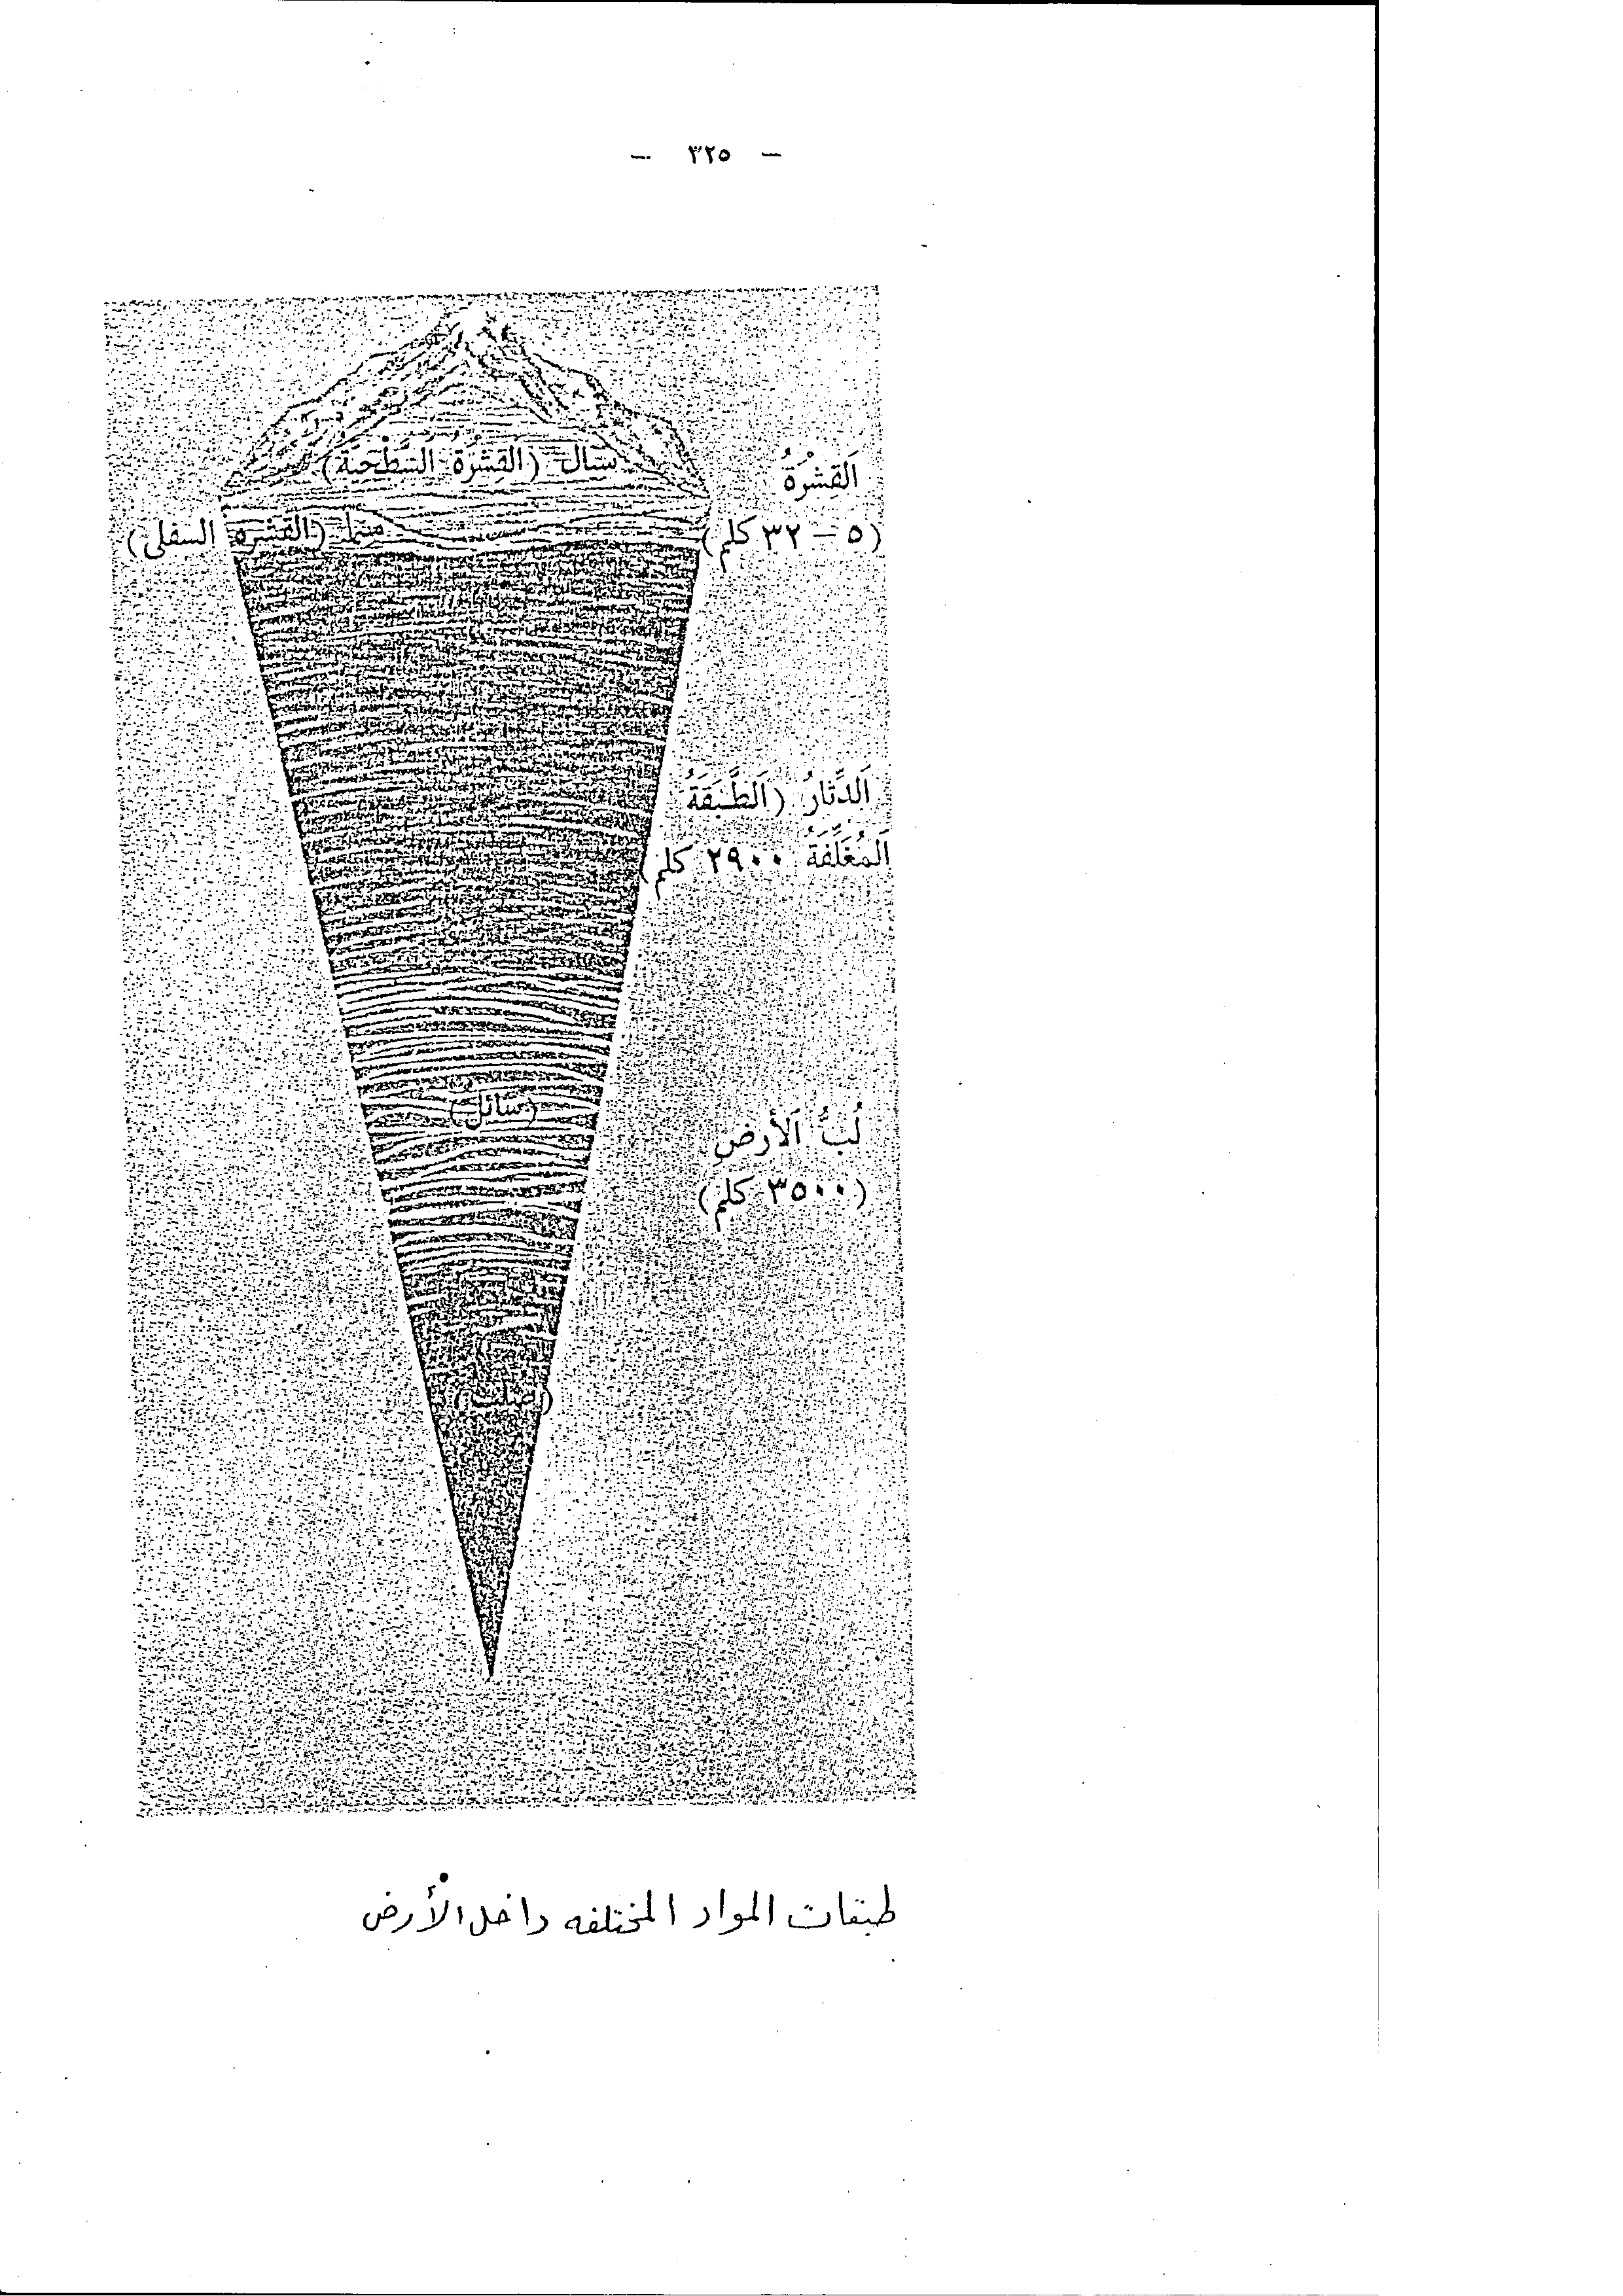 — ٣٢٥ —
سيال (القشرة السطحية)
القشرة
سيما (القشرة السفلى)
(٥ – ٣٢ كلم)
الدِّثارُ (الطَّبَقَةُ
المُغَلِّفَةُ ٢٩٠٠ كلم)
(سائل)
لُبُّ الأرضِ
(٣٥٠٠ كلم)
(صلب)
طبقات المواد المختلفه داخل الأرض